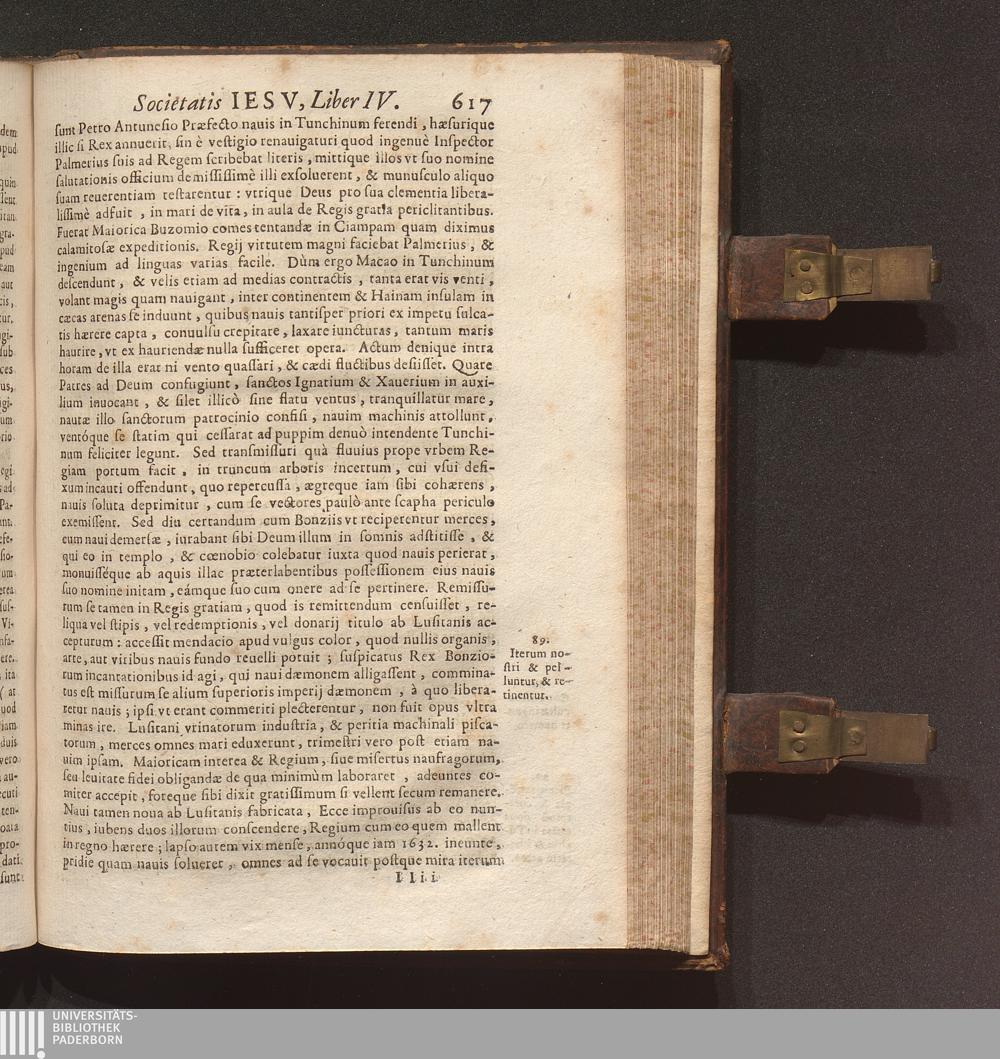 Societatis IESV, Liber IV. 617
sunt Petro Antunesio Præfecto nauis in Tunchinum ferendi, hæsurique
illic si Rex annuerit, sin è vestigio renauigaturi quod ingenuè Inspector
Palmerius suis ad Regem scribebat literis, mittique illos vt suo nomine
salutationis officium demississimè illi exsoluerent, & munusculo aliquo
suam reuerentiam testarentur : vtrique Deus pro sua clementia libera-
lissimè adfuit , in mari de vita, in aula de Regis gratia periclitantibus.
Fuerat Maiorica Buzomio comes tentandæ in Ciampam quam diximus
calamitosæ expeditionis. Regij virtutem magni faciebat Palmerius , &
ingenium ad linguas varias facile. Dùm ergo Macao in Tunchinum
descendunt , & velis etiam ad medias contractis , tanta erat vis venti ,
volant magis quam nauigant , inter continentem & Hainam insulam in
cæcas arenas se induunt , quibus nauis tantisper priori ex impetu sulca-
tis hærere capta , conuulsu crepitare , laxare iuncturas , tantum maris
haurire, vt ex hauriendæ nulla sufficeret opera. Actum denique intra
horam de illa erat ni vento quassari , & cædi fluctibus desiisset. Quare
Patres ad Deum confugiunt , sanctos Ignatium & Xauerium in auxi-
lium inuocant , & silet illicò sine flatu ventus , tranquillatur mare,
nautæ illo sanctorum patrocinio confisi , nauim machinis attollunt,
ventóque se statim qui cessarat ad puppim denuò intendente Tunchi-
num feliciter legunt. Sed transmissuri quà fluuius prope vrbem Re-
giam portum facit , in truncum arboris incertum , cui vsui defi-
xum incauti offendunt, quo repercussa , ægreque iam sibi cohærens ,
nauis soluta deprimitur , cum se vectores paulò ante scapha periculo
exemissent. Sed diu certandum cum Bonziis vt reciperentur merces,
cum naui demersæ , iurabant sibi Deum illum in somnis adstitisse , &
qui eo in templo , & cœnobio colebatur iuxta quod nauis perierat,
monuisséque ab aquis illac præterlabentibus possessionem eius nauis
suo nomine initam , eámque suo cum onere ad se pertinere. Remissu-
rum se tamen in Regis gratiam , quod is remittendum censuisset , re-
liqua vel stipis , vel redemptionis , vel donarij titulo ab Lusitanis ac-
cepturum : accessit mendacio apud vulgus color , quod nullis organis,
arte, aut viribus nauis fundo reuelli potuit ; suspicatus Rex Bonzio-
rum incantationibus id agi , qui naui dæmonem alligassent , commina-
tus est missurum se alium superioris imperij dæmonem , à quo libera-
retur nauis ; ipsi vt erant commeriti plecterentur , non fuit opus vltra
minas ire. Lusitani vrinatorum industria, & peritia machinali pisca-
torum , merces omnes mari eduxerunt, trimestri vero post etiam na-
uim ipsam. Maioricam interea & Regium, siue misertus naufragorum,
seu leuitate fidei obligandæ de qua minimùm laboraret , adeuntes co-
miter accepit, foreque sibi dixit gratissimum si vellent secum remanere.
Naui tamen noua ab Lusitanis fabricata , Ecce improuisus ab eo nun-
tius , iubens duos illorum conscendere, Regium cum eo quem mallent
in regno hærere ; lapso autem vix mense, annóque iam 1632. ineunte,
pridie quam nauis solueret , omnes ad se vocauit postque mira iterum
I I i i
89.
Iterum no-
stri & pel-
luntur, & re-
tinentur.
UNIVERSITÄTS-
BIBLIOTHEK
PADERBORN